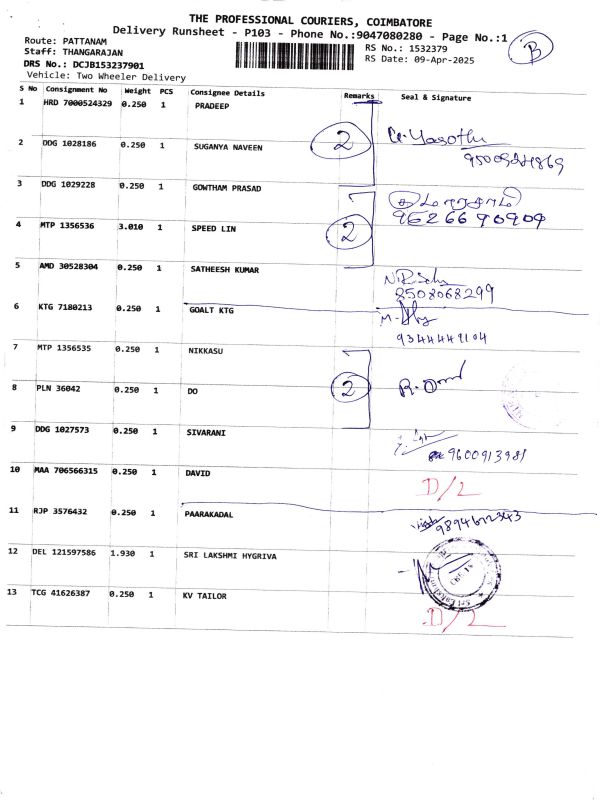 THE PROFESSIONAL COURIERS, COIMBATORE
Delivery Runsheet - P103 - Phone No.:9047080280 - Page No.:1
B
Route: PATTANAM
RS No.: 1532379
Staff: THANGARAJAN
RS Date: 09-Apr-2025
DRS No.: DCJB153237901
Vehicle: Two Wheeler Delivery
S No Consignment No Weight PCS Consignee Details Remarks Seal & Signature
1 HRD 7000524329 0.250 1 PRADEEP
2 DDG 1028186 0.250 1 SUGANYA NAVEEN 2
3 DDG 1029228 0.250 1 GOWTHAM PRASAD
9626690909
4 MTP 1356536 3.010 1 SPEED LIN 2
5 AMD 30528304 0.250 1 SATHEESH KUMAR
8508068299
6 KTG 7180213 0.250 1 GOALT KTG
9344449104
7 MTP 1356535 0.250 1 NIKKASU
8 PLN 36042 0.250 1 DO 2
9 DDG 1027573 0.250 1 SIVARANI
9600913981
10 MAA 706566315 0.250 1 DAVID D/2
11 RJP 3576432 0.250 1 PAARAKADAL
12 DEL 121597586 1.930 1 SRI LAKSHMI HYGRIVA
13 TCG 41626387 0.250 1 KV TAILOR D/2